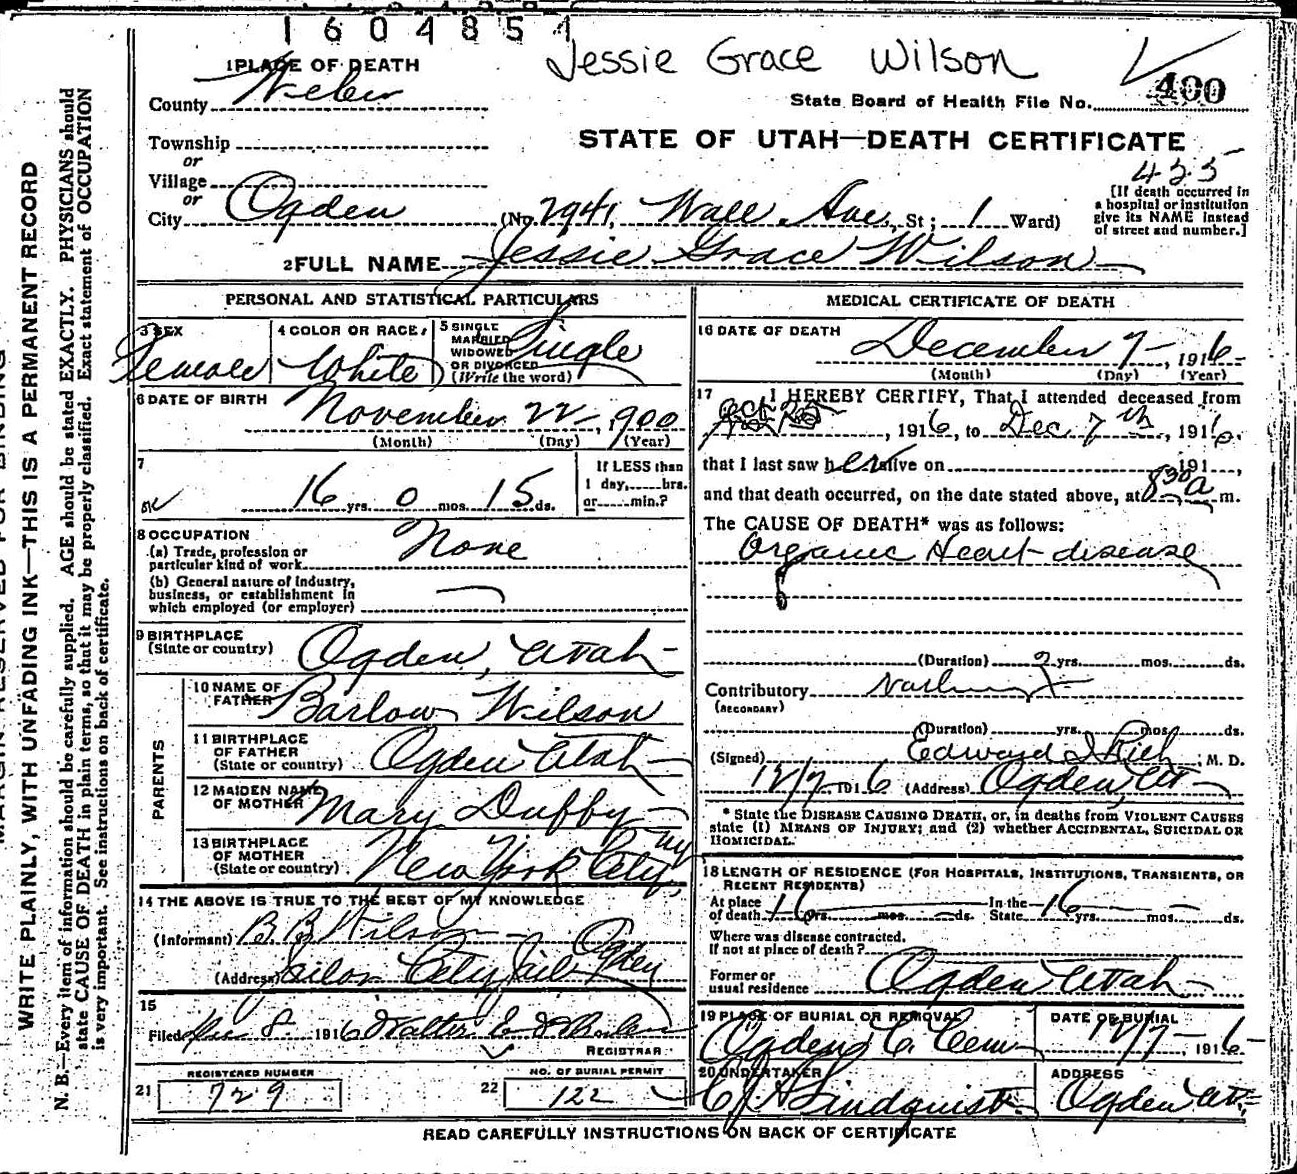 1604851
Jessie Grace Wilson
1 PLACE OF DEATH
County Weber
State Board of Health File No. 400
Township
or
STATE OF UTAH—DEATH CERTIFICATE
435
Village
or
City Ogden (No. 2941, Wall Ave, St; 1 Ward)
[If death occurred in
a hospital or institution
give its NAME instead
of street and number.]
2 FULL NAME Jessie Grace Wilson
PERSONAL AND STATISTICAL PARTICULARS
3 SEX Female
4 COLOR OR RACE White
5 SINGLE
MARRIED
WIDOWED
OR DIVORCED
(Write the word) Single
6 DATE OF BIRTH November 22, 1900
(Month) (Day) (Year)
7
16 yrs. 0 mos. 15 ds.
If LESS than
1 day, hrs.
or min.?
8 OCCUPATION
(a) Trade, profession or
particular kind of work None
(b) General nature of industry,
business, or establishment in
which employed (or employer)
9 BIRTHPLACE
(State or country) Ogden, Utah
PARENTS
10 NAME OF
FATHER Barlow Wilson
11 BIRTHPLACE
OF FATHER
(State or country) Ogden Utah
12 MAIDEN NAME
OF MOTHER Mary Duffy
13 BIRTHPLACE
OF MOTHER
(State or country) New York City NY
14 THE ABOVE IS TRUE TO THE BEST OF MY KNOWLEDGE
(Informant) B. B. Wilson
(Address) Jailor City Jail Ogden
15
Filed Dec 8 1916 Walter
REGISTRAR
REGISTERED NUMBER
21 729
NO. OF BURIAL PERMIT
22 122
MEDICAL CERTIFICATE OF DEATH
16 DATE OF DEATH December 7, 1916
(Month) (Day) (Year)
17 I HEREBY CERTIFY, That I attended deceased from
Oct 25, 1916, to Dec 7th, 1916,
that I last saw her alive on 191 ,
and that death occurred, on the date stated above, at 8 30 a m.
The CAUSE OF DEATH* was as follows:
Organic Heart disease
(Duration) 2 yrs. mos. ds.
Contributory
(SECONDARY)
(Duration) yrs. mos. ds.
(Signed) Edward I Rich, M. D.
12/7 1916 (Address) Ogden, Ut
* State the DISEASE CAUSING DEATH, or, in deaths from VIOLENT CAUSES
state (1) MEANS OF INJURY; and (2) whether ACCIDENTAL, SUICIDAL OR
HOMICIDAL.
18 LENGTH OF RESIDENCE (FOR HOSPITALS, INSTITUTIONS, TRANSIENTS, OR
RECENT RESIDENTS)
At place
of death 16 yrs. mos. ds. In the
State 16 yrs. mos. ds.
Where was disease contracted.
If not at place of death?
Former or
usual residence Ogden Utah
19 PLACE OF BURIAL OR REMOVAL
Ogden C. Cem
DATE OF BURIAL
12/7 1916
20 UNDERTAKER
Lindquist
ADDRESS
Ogden Ut.
READ CAREFULLY INSTRUCTIONS ON BACK OF CERTIFICATE
WRITE PLAINLY, WITH UNFADING INK—THIS IS A PERMANENT RECORD
N. B.—Every item of information should be carefully supplied. AGE should be stated EXACTLY. PHYSICIANS should
state CAUSE OF DEATH in plain terms, so that it may be properly classified. Exact statement of OCCUPATION
is very important. See instructions on back of certificate.